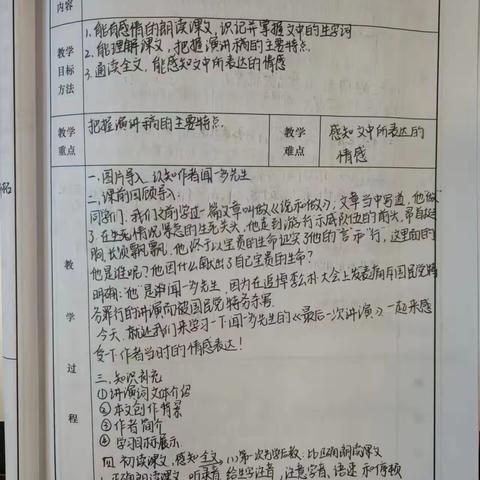 内容
教学目标方法
1、能有感情的朗读课文,识记并掌握文中的生字词
2、能理解课文,把握演讲稿的主要特点
3、通读全文,能感知文中所表达的情感
教学重点
把握演讲稿的主要特点
教学难点
感知文中所表达的情感
教学过程
一、图片导入 认知作者闻一多先生
二、课前回顾导入:
同学们,我们之前学过一篇文章叫做《说和做》,文章当中写道,他"做"
了,在生死
他走到游行示威队伍的前头,昂首挺
胸,长须飘飘。他终于以宝贵的生命证实了他的"言"和"行",这里面的
他是谁呢?他因什么献出了自己宝贵的生命?
明确:他是闻一多先生,因为在追悼李公朴大会上发表痛斥国民党特
务罪行的讲演而被国民党特务杀害
今天,就让我们来学习一下闻一多先生的《最后一次讲演》一起来感
受下作者当时的情感表达!
三、知识补充
①讲演词文体介绍
②本文创作背景
③作者简介
④学习目标展示
四、初读课文,感知全文
1、正确朗读课文,听录音 给生字注音,注意字音、语速和停顿